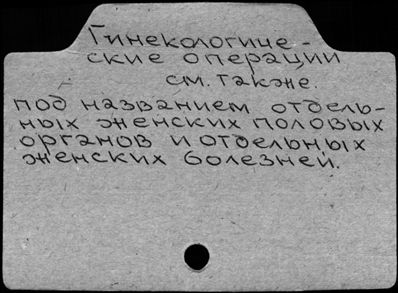 Гинекологиче-
ские операции
см. также.
под названием отдель-
ных женских половых
органов и отдельных
женских болезней.